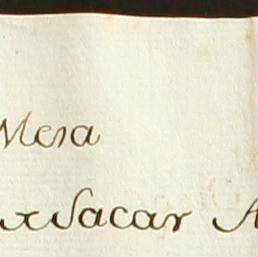 Mesa
x Sacar A